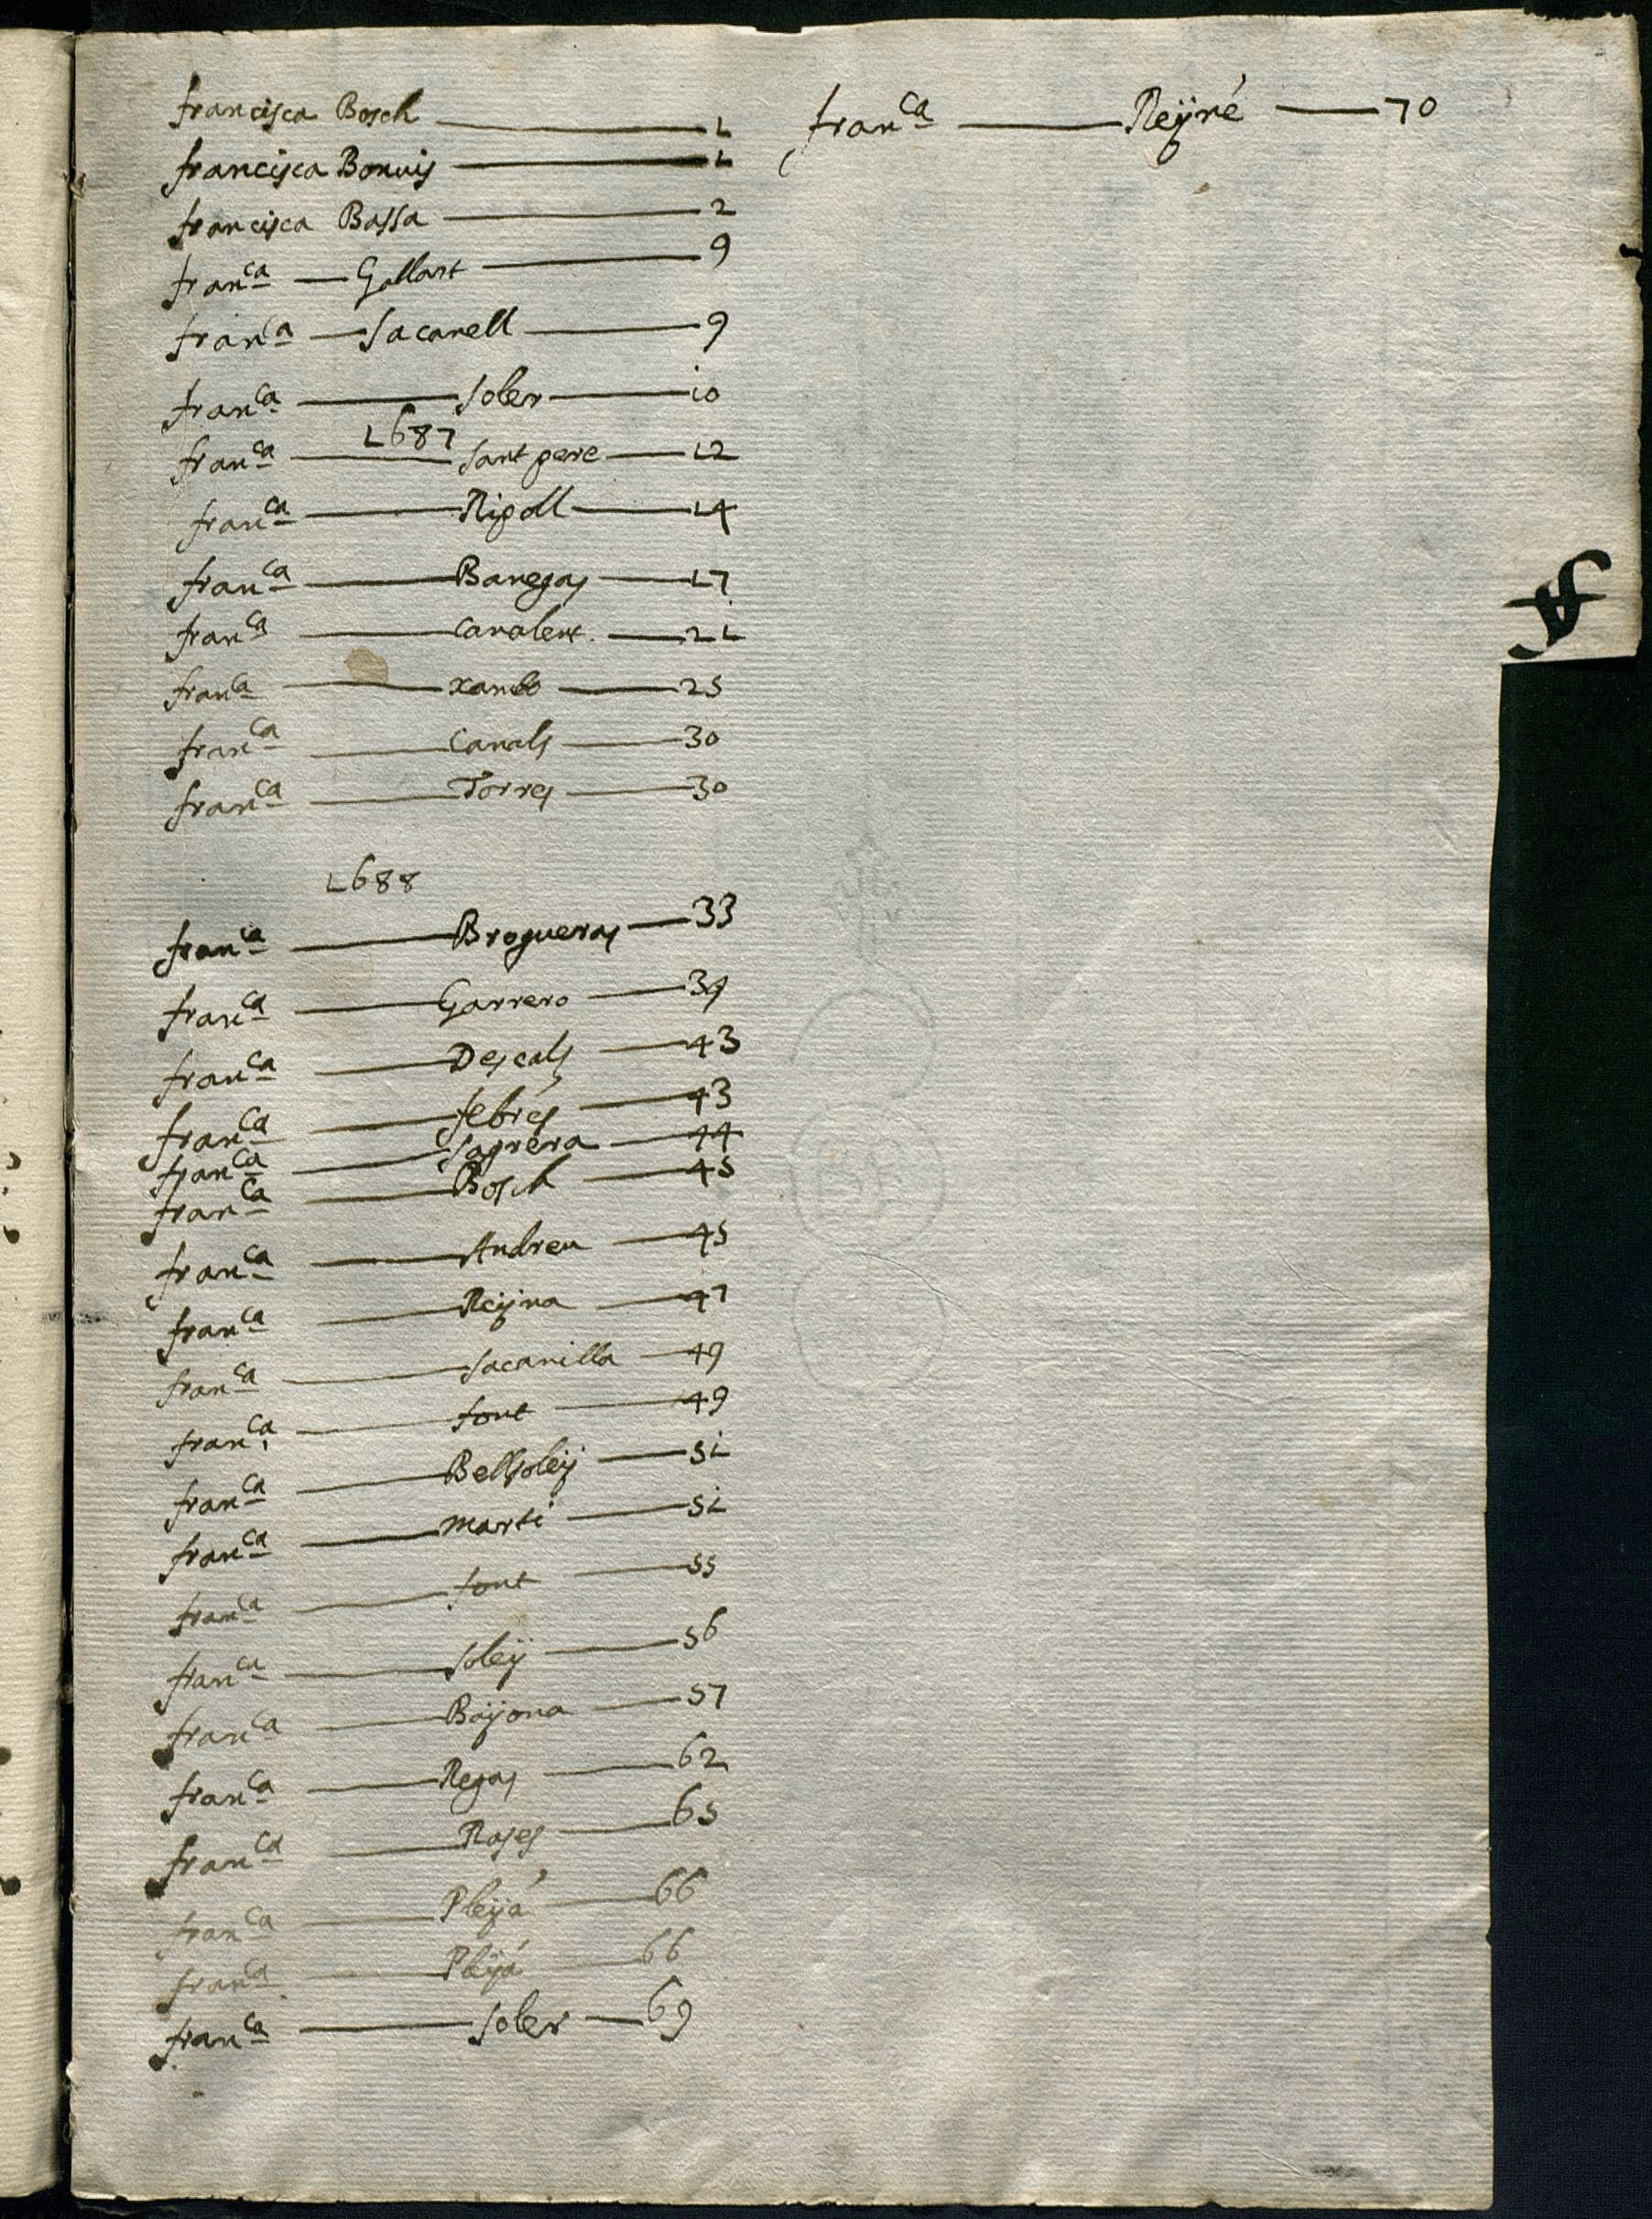 francisca Bosch — 1
francisca Bonvis — 1
francisca Bassa — 2
fran.ca — Gallart — 9
fran.ca — Sacanell — 9
fran.ca — Soler — 10
1687
fran.ca — Santpere — 12
fran.ca — Ripoll — 14
fran.ca — Banegas — 17
fran.ca — Canalent — 21
fran.ca — xanbo — 25
fran.ca — Canals — 30
fran.ca — Torres — 30
1688
fran.ca — Brogueras — 33
fran.ca — Garrero — 39
fran.ca — Descals — 43
fran.ca — febrés — 43
fran.ca — Sagrera — 44
fran.ca — Bosch — 45
fran.ca — Andreu — 45
fran.ca — Reÿna — 47
fran.ca — Sacanilla — 49
fran.ca — font — 49
fran.ca — Bellsoleÿ — 51
fran.ca — marti — 51
fran.ca — font — 55
fran.ca — Soleÿ — 56
fran.ca — Baÿona — 57
fran.ca — Regas — 62
fran.ca — Roses — 65
fran.ca — Pleÿá — 66
fran.ca — Pleÿá — 66
fran.ca — Soler — 69
fran.ca — Reÿné — 70